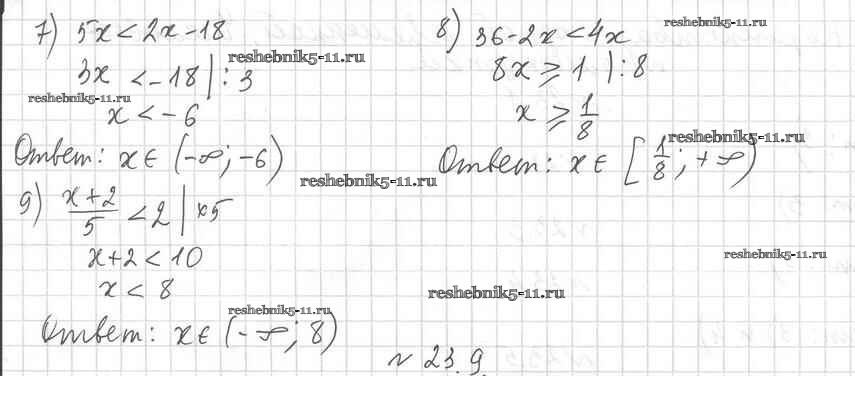 7) 5x < 2x - 18
3x < -18 | : 3
x < -6
Ответ: x ∈ (-∞; -6)
8) 36 - 2x < 4x
8x ⩾ 1 | : 8
x ⩾ 1/8
Ответ: x ∈ [1/8; +∞)
9) (x+2)/5 < 2 | ×5
x+2 < 10
x < 8
Ответ: x ∈ (-∞; 8)
№ 23.9.
reshebnik5-11.ru
reshebnik5-11.ru
reshebnik5-11.ru
reshebnik5-11.ru
reshebnik5-11.ru
reshebnik5-11.ru
reshebnik5-11.ru
reshebnik5-11.ru